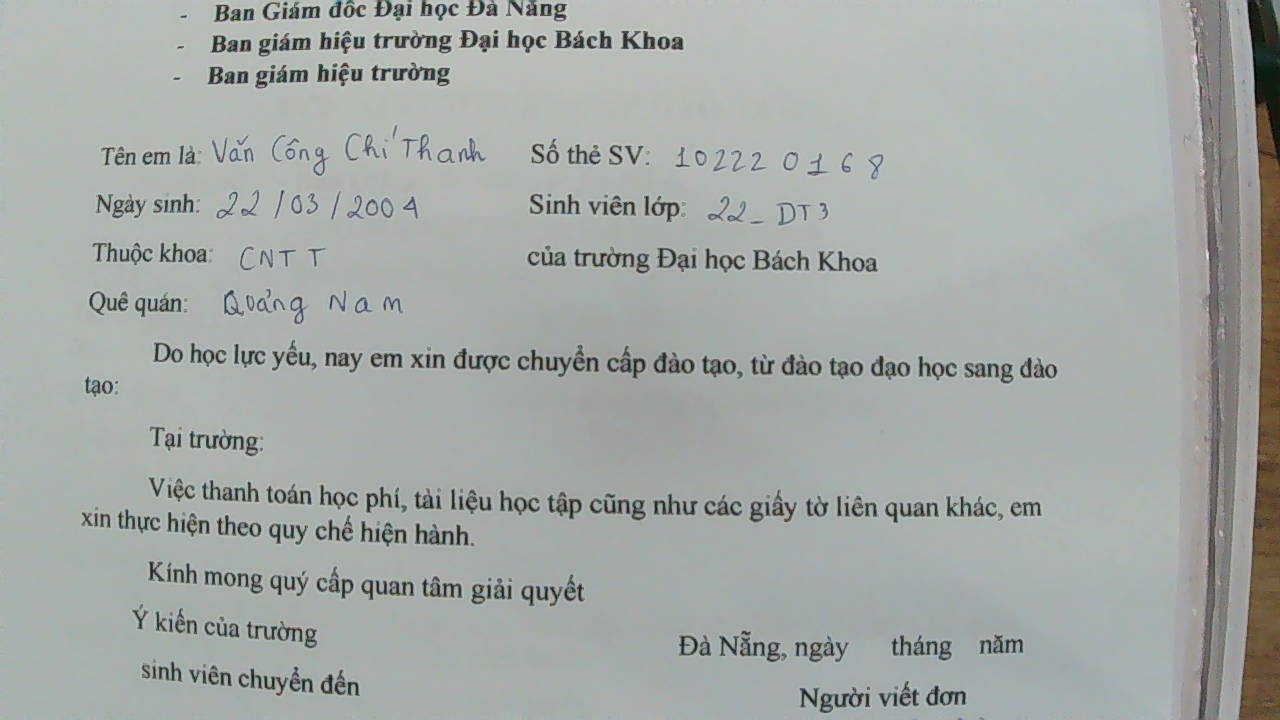 - Ban Giám đốc Đại học Đà Nẵng
- Ban giám hiệu trường Đại học Bách Khoa
- Ban giám hiệu trường
Tên em là: Văn Công Chí Thanh Số thẻ SV: 102220168
Ngày sinh: 22/03/2004 Sinh viên lớp: 22_DT3
Thuộc khoa: CNTT của trường Đại học Bách Khoa
Quê quán: Quảng Nam
Do học lực yếu, nay em xin được chuyển cấp đào tạo, từ đào tạo đạo học sang đào
tạo:
Tại trường:
Việc thanh toán học phí, tài liệu học tập cũng như các giấy tờ liên quan khác, em
xin thực hiện theo quy chế hiện hành.
Kính mong quý cấp quan tâm giải quyết
Ý kiến của trường
sinh viên chuyển đến
Đà Nẵng, ngày tháng năm
Người viết đơn